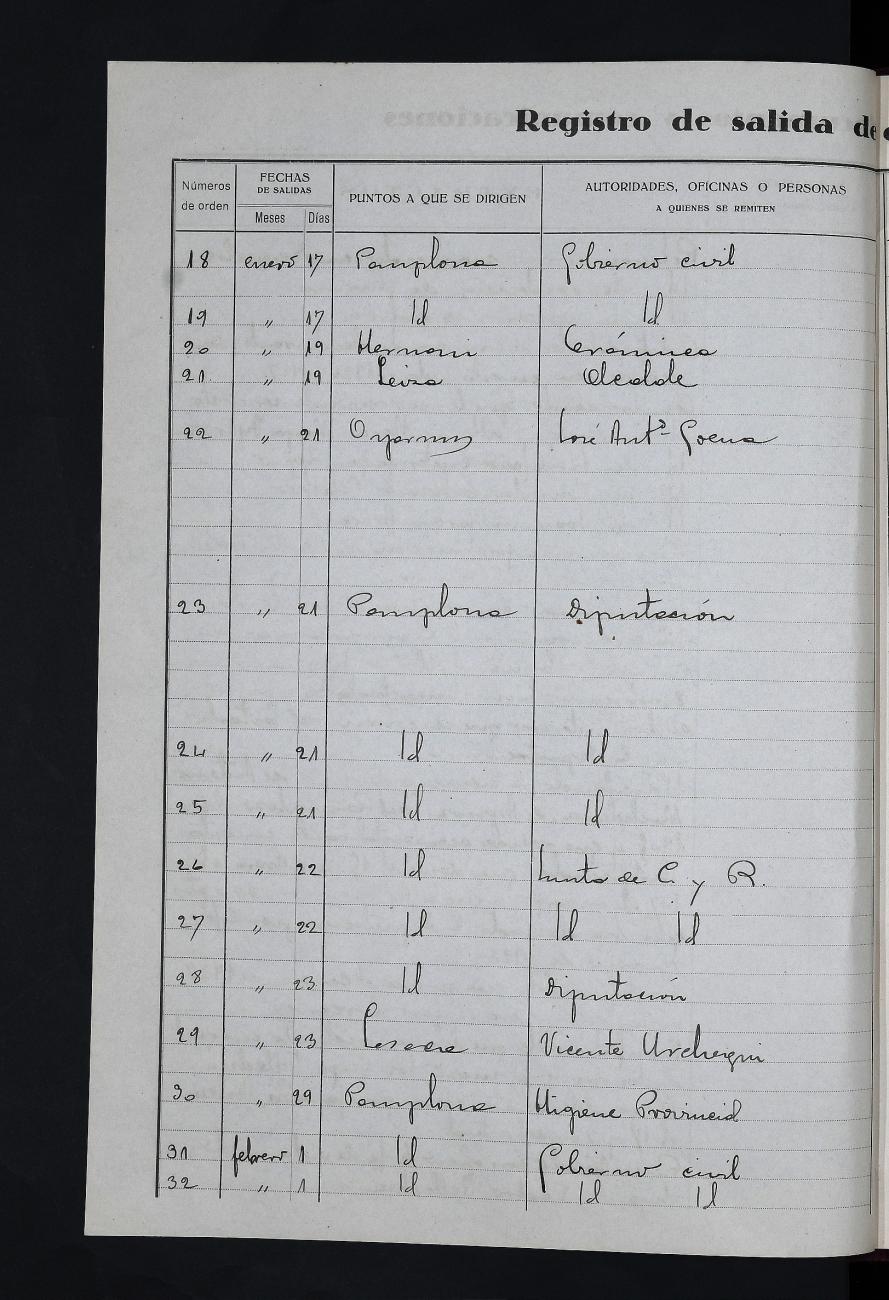 Registro de salida de
Números de orden
FECHAS
DE SALIDAS
Meses Días
PUNTOS A QUE SE DIRIGEN
AUTORIDADES, OFICINAS O PERSONAS
A QUIENES SE REMITEN
18 enero 17 Pamplona Gobierno civil
19 " 17 Id Id
20 " 19 Hernani Cerámica
21 " 19 Leiza Alcalde
22 " 21 Oyarzun José Antº Goena
23 " 21 Pamplona Diputación
24 " 21 Id Id
25 " 21 Id Id
26 " 22 Id Junta de C. y R.
27 " 22 Id Id Id
28 " 23 Id Diputación
29 " 23 Lesaca Vicente Urchegui
30 " 29 Pamplona Higiene Provincial
31 febrero 1 Id Gobierno civil
32 " 1 Id Id Id